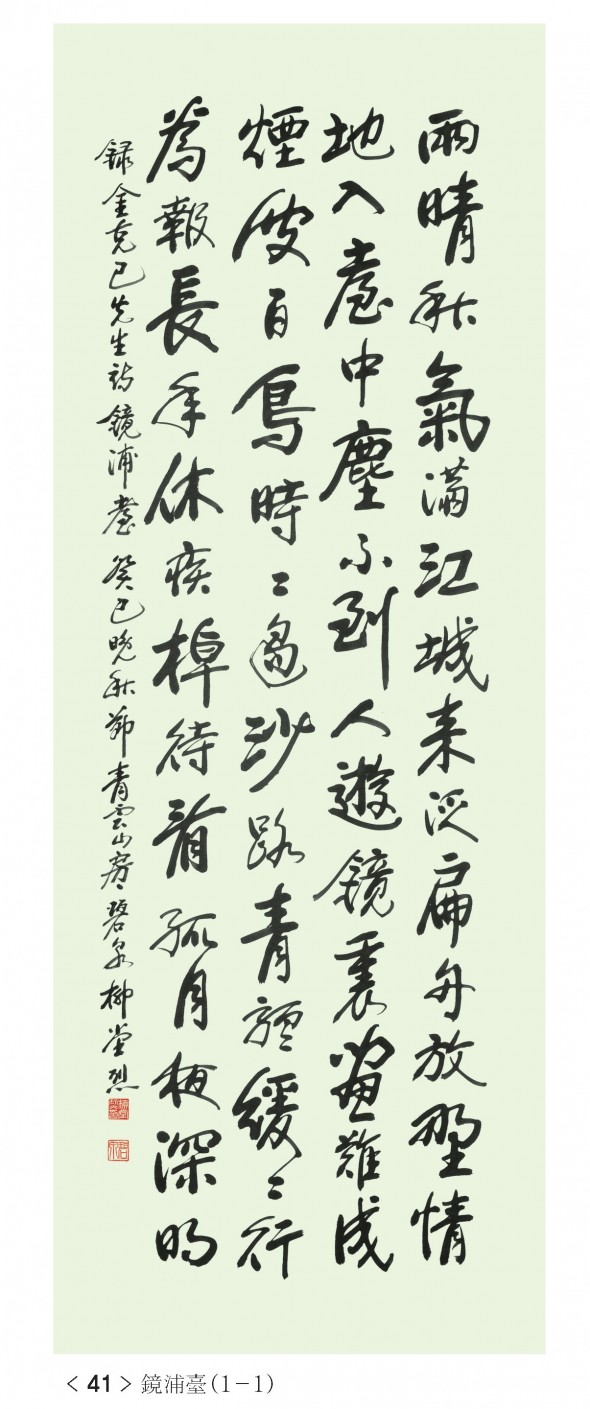 雨晴秋氣滿江城来泛扁舟放野情
地入壺中塵不到人遊鏡裏畵難成
煙波白鳥時〻過沙路青驢緩〻行
為報長年休疾棹待看孤月夜深明
録金克己先生詩鏡浦臺 癸巳晩秋節青雲山房碧泉柳堂烈
< 41 > 鏡浦臺(1-1)